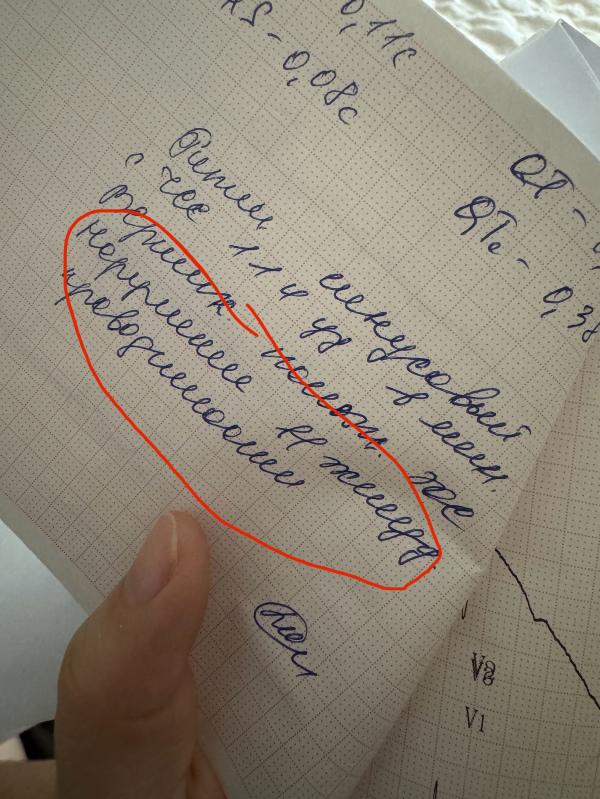 0,11с
RS - 0,08с
QT - 
QTc - 0,38
Ритм синусовый
с ЧСС 114 уд в мин.
Вертик. полож. ЭОС
Нарушение н/желуд.
проводимости
V1